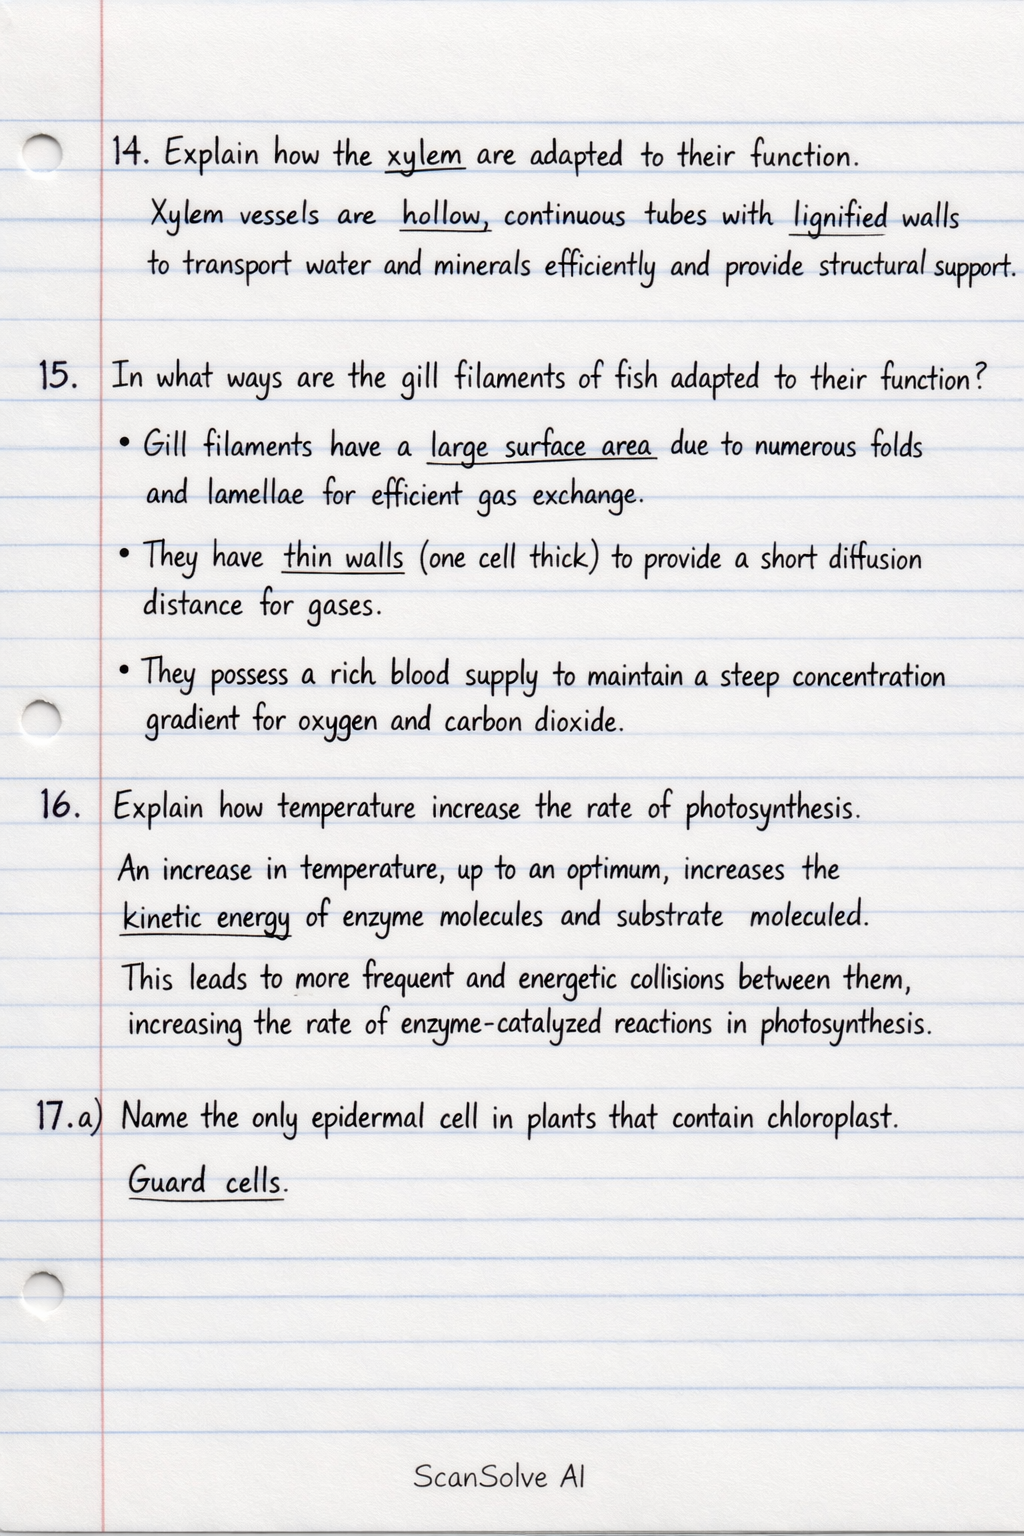 14. Explain how the xylem are adapted to their function.
Xylem vessels are hollow, continuous tubes with lignified walls
to transport water and minerals efficiently and provide structural support.
15. In what ways are the gill filaments of fish adapted to their function?
• Gill filaments have a large surface area due to numerous folds
and lamellae for efficient gas exchange.
• They have thin walls (one cell thick) to provide a short diffusion
distance for gases.
• They possess a rich blood supply to maintain a steep concentration
gradient for oxygen and carbon dioxide.
16. Explain how temperature increase the rate of photosynthesis.
An increase in temperature, up to an optimum, increases the
kinetic energy of enzyme molecules and substrate moleculed.
This leads to more frequent and energetic collisions between them,
increasing the rate of enzyme-catalyzed reactions in photosynthesis.
17.a) Name the only epidermal cell in plants that contain chloroplast.
Guard cells.
ScanSolve AI